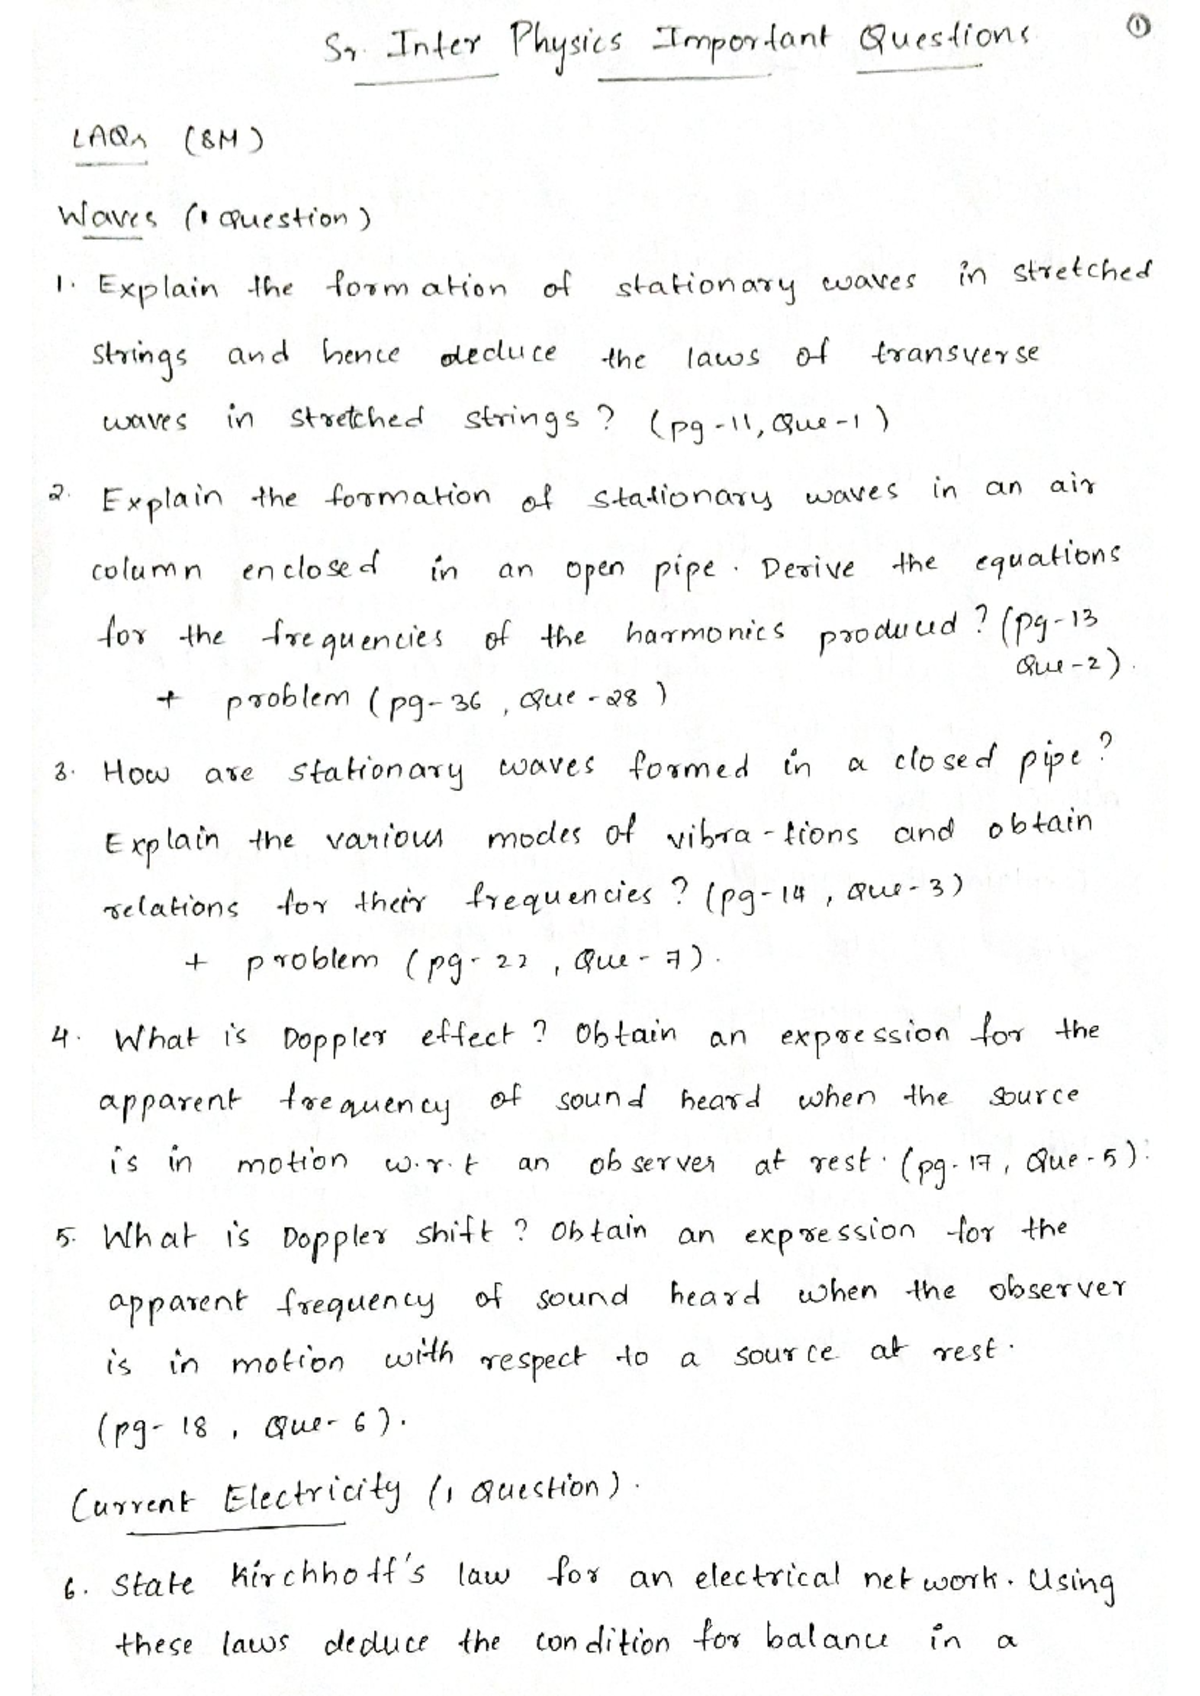 Sr. Inter Physics Important Questions
①
LAQs (8M)
Waves (1 Question)
1. Explain the formation of stationary waves in stretched
strings and hence deduce the laws of transverse
waves in stretched strings? (pg-11, Que-1)
2. Explain the formation of stationary waves in an air
column enclosed in an open pipe. Derive the equations
for the frequencies of the harmonics produced? (pg-13
Que-2).
+ problem (pg-36, Que-28)
3. How are stationary waves formed in a closed pipe?
Explain the various modes of vibra-tions and obtain
relations for their frequencies? (pg-14, Que-3)
+ problem (pg-22, Que-7).
4. What is Doppler effect? Obtain an expression for the
apparent frequency of sound heard when the source
is in motion w.r.t an observer at rest. (pg-17, Que-5).
5. What is Doppler shift? Obtain an expression for the
apparent frequency of sound heard when the observer
is in motion with respect to a source at rest.
(pg-18, Que-6).
Current Electricity (1 Question).
6. State Kirchhoff's law for an electrical network. Using
these laws deduce the condition for balance in a